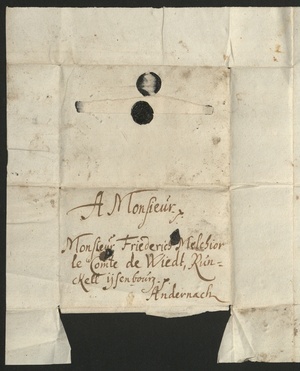 A Monsieur.
Monsieur Friederich Melchior
le Comte de Wiedt, Run-
ckell ijsenbourg
Andernach